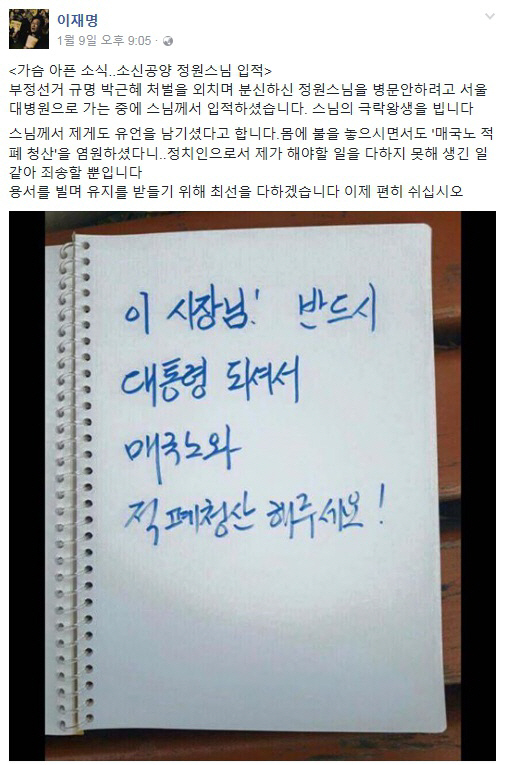 이재명
1월 9일 오후 9:05 ·
<가슴 아픈 소식..소신공양 정원스님 입적>
부정선거 규명 박근혜 처벌을 외치며 분신하신 정원스님을 병문안하려고 서울
대병원으로 가는 중에 스님께서 입적하셨습니다. 스님의 극락왕생을 빕니다
스님께서 제게도 유언을 남기셨다고 합니다.몸에 불을 놓으시면서도 '매국노 적
폐 청산'을 염원하셨다니..정치인으로서 제가 해야할 일을 다하지 못해 생긴 일
같아 죄송할 뿐입니다
용서를 빌며 유지를 받들기 위해 최선을 다하겠습니다 이제 편히 쉬십시오
이 시장님! 반드시
대통령 되셔서
매국노와
적폐청산 해주세요!